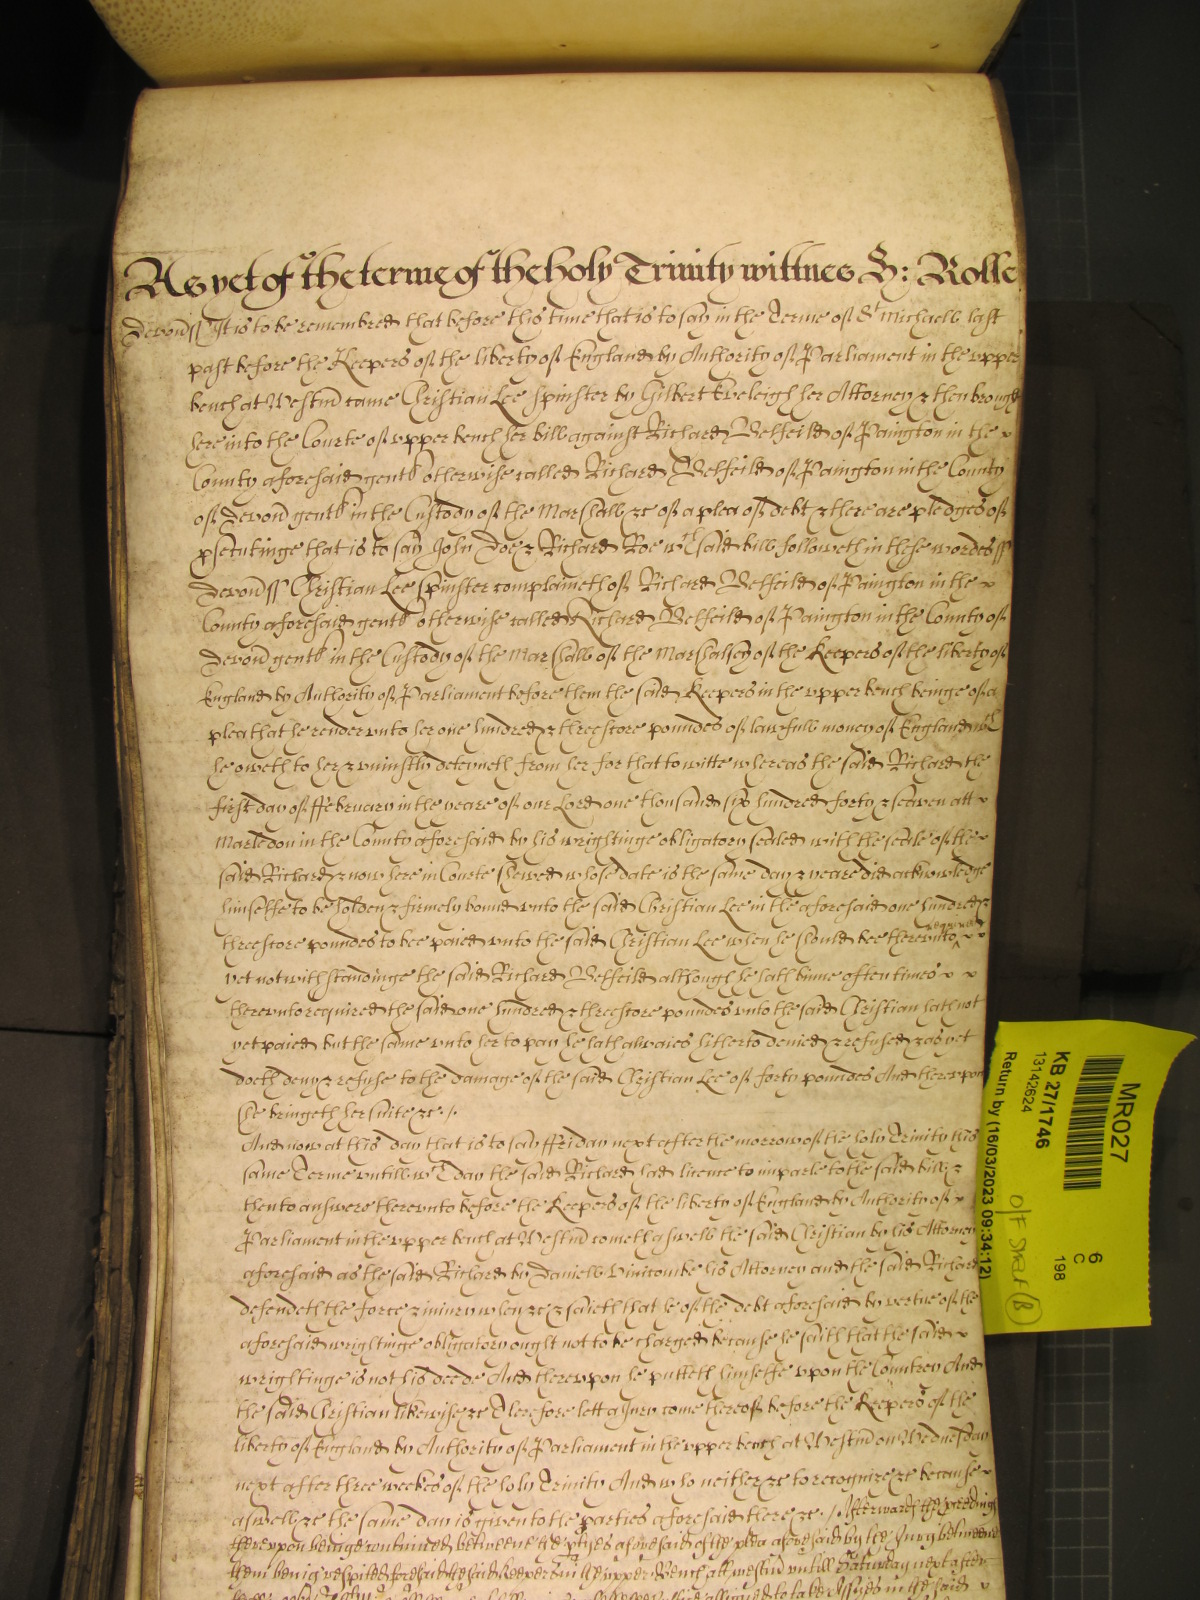 As yet of the terme of the holy Trinity wittnes H: Rolle
Devon ss It is to be remembred that before this time that is to say in the Terme of St Michaell last
past before the Keepers of the liberty of England by Authority of Parliament in the upper
bench at Westm came Christian Lee spinster by Gilbert Eveleigh her Attorney & then brough
here into the Courte of upper bench her bill against Richard Belfeild of Paington in the
County aforesaid gent otherwise called Richard Belfeild of Paington in the County
of Devon gent in the Custody of the Marshall &c of a plea of debt & there are pledges of
psecutinge that is to say John Doe & Richard Roe wch said bill followeth in these wordes ss
Devon ss Christian Lee spinster complaineth of Richard Belfeild of Paington in the
County aforesaid gent otherwise called Richard Belfeild of Paington in the County of
Devon gent in the Custody of the Marshall of the Marshalsey of the Keepers of the liberty of
England by Authority of Parliament before them the said Keepers in the upper bench beinge of a
plea that he render unto her one hundred & threescore poundes of lawfull money of England wch
he oweth to her & uniustly deteyneth from her for that to witte whereas the said Richard the
first day of ffebruary in the yeare of our Lord one thousand six hundred forty & seaven att
Marledon in the County aforesaid by his wrightinge obligatory sealed with the seale of the
said Richard & now here in Courte shewed whose date is the same day & yeare did acknowledge
himselfe to be holden & firmely bound unto the said Christian Lee in the aforesaid one hundred &
threescore poundes to bee paied unto the said Christian Lee when he should bee thereunto required
yet notwithstandinge the said Richard Belfeild although he hath binne often times
thereunto required the said one hundred & threescore poundes unto the said Christian hath not
yet paied but the same unto her to pay he hath alwaies hitherto denied & refused & as yet
doth deny & refuse to the damage of the said Christian Lee of forty poundes And thereupon
she bringeth her suite &c ./.
And now at this day that is to say ffriday next after the morrow of the holy Trinity this
same Terme untill wch day the said Richard had licence to imparle to the said bill &
then to answere thereunto before the Keepers of the liberty of England by Authority of
Parliament in the upper bench at Westm cometh aswell the said Christian by his Attorney
aforesaid as the said Richard by Daniell Vinicombe his Attorney and the said Richard
defendeth the force & iniury when &c & saieth that he of the debt aforesaid by vertue of the
aforesaid wrightinge obligatory ought not to be charged because he saith that the said
wrightinge is not his deede And thereupon he putteth himselfe upon the Countrey And
the said Christian likewise &c Therefore lett a Jury come thereof before the Keepers of the
liberty of England by Authority of Parliament in the upper bench at Westm on Wednesday
next after three weekes of the holy Trinity And who neither &c to recognize &c because
aswell &c the same day is given to the parties aforesaid there &c ./. Afterwards the pceedings
thereupon being continued betweene the ptyes aforesaid of the plea aforesaid by the Jury betweene
them being respited before the said Keepers in the upper Bench att westm untill Saturday next after
assigned to take Assizes in the said
MR027
KB 27/1746
13142624
Return by (16/03/2023 09:34:12)
6
C
198